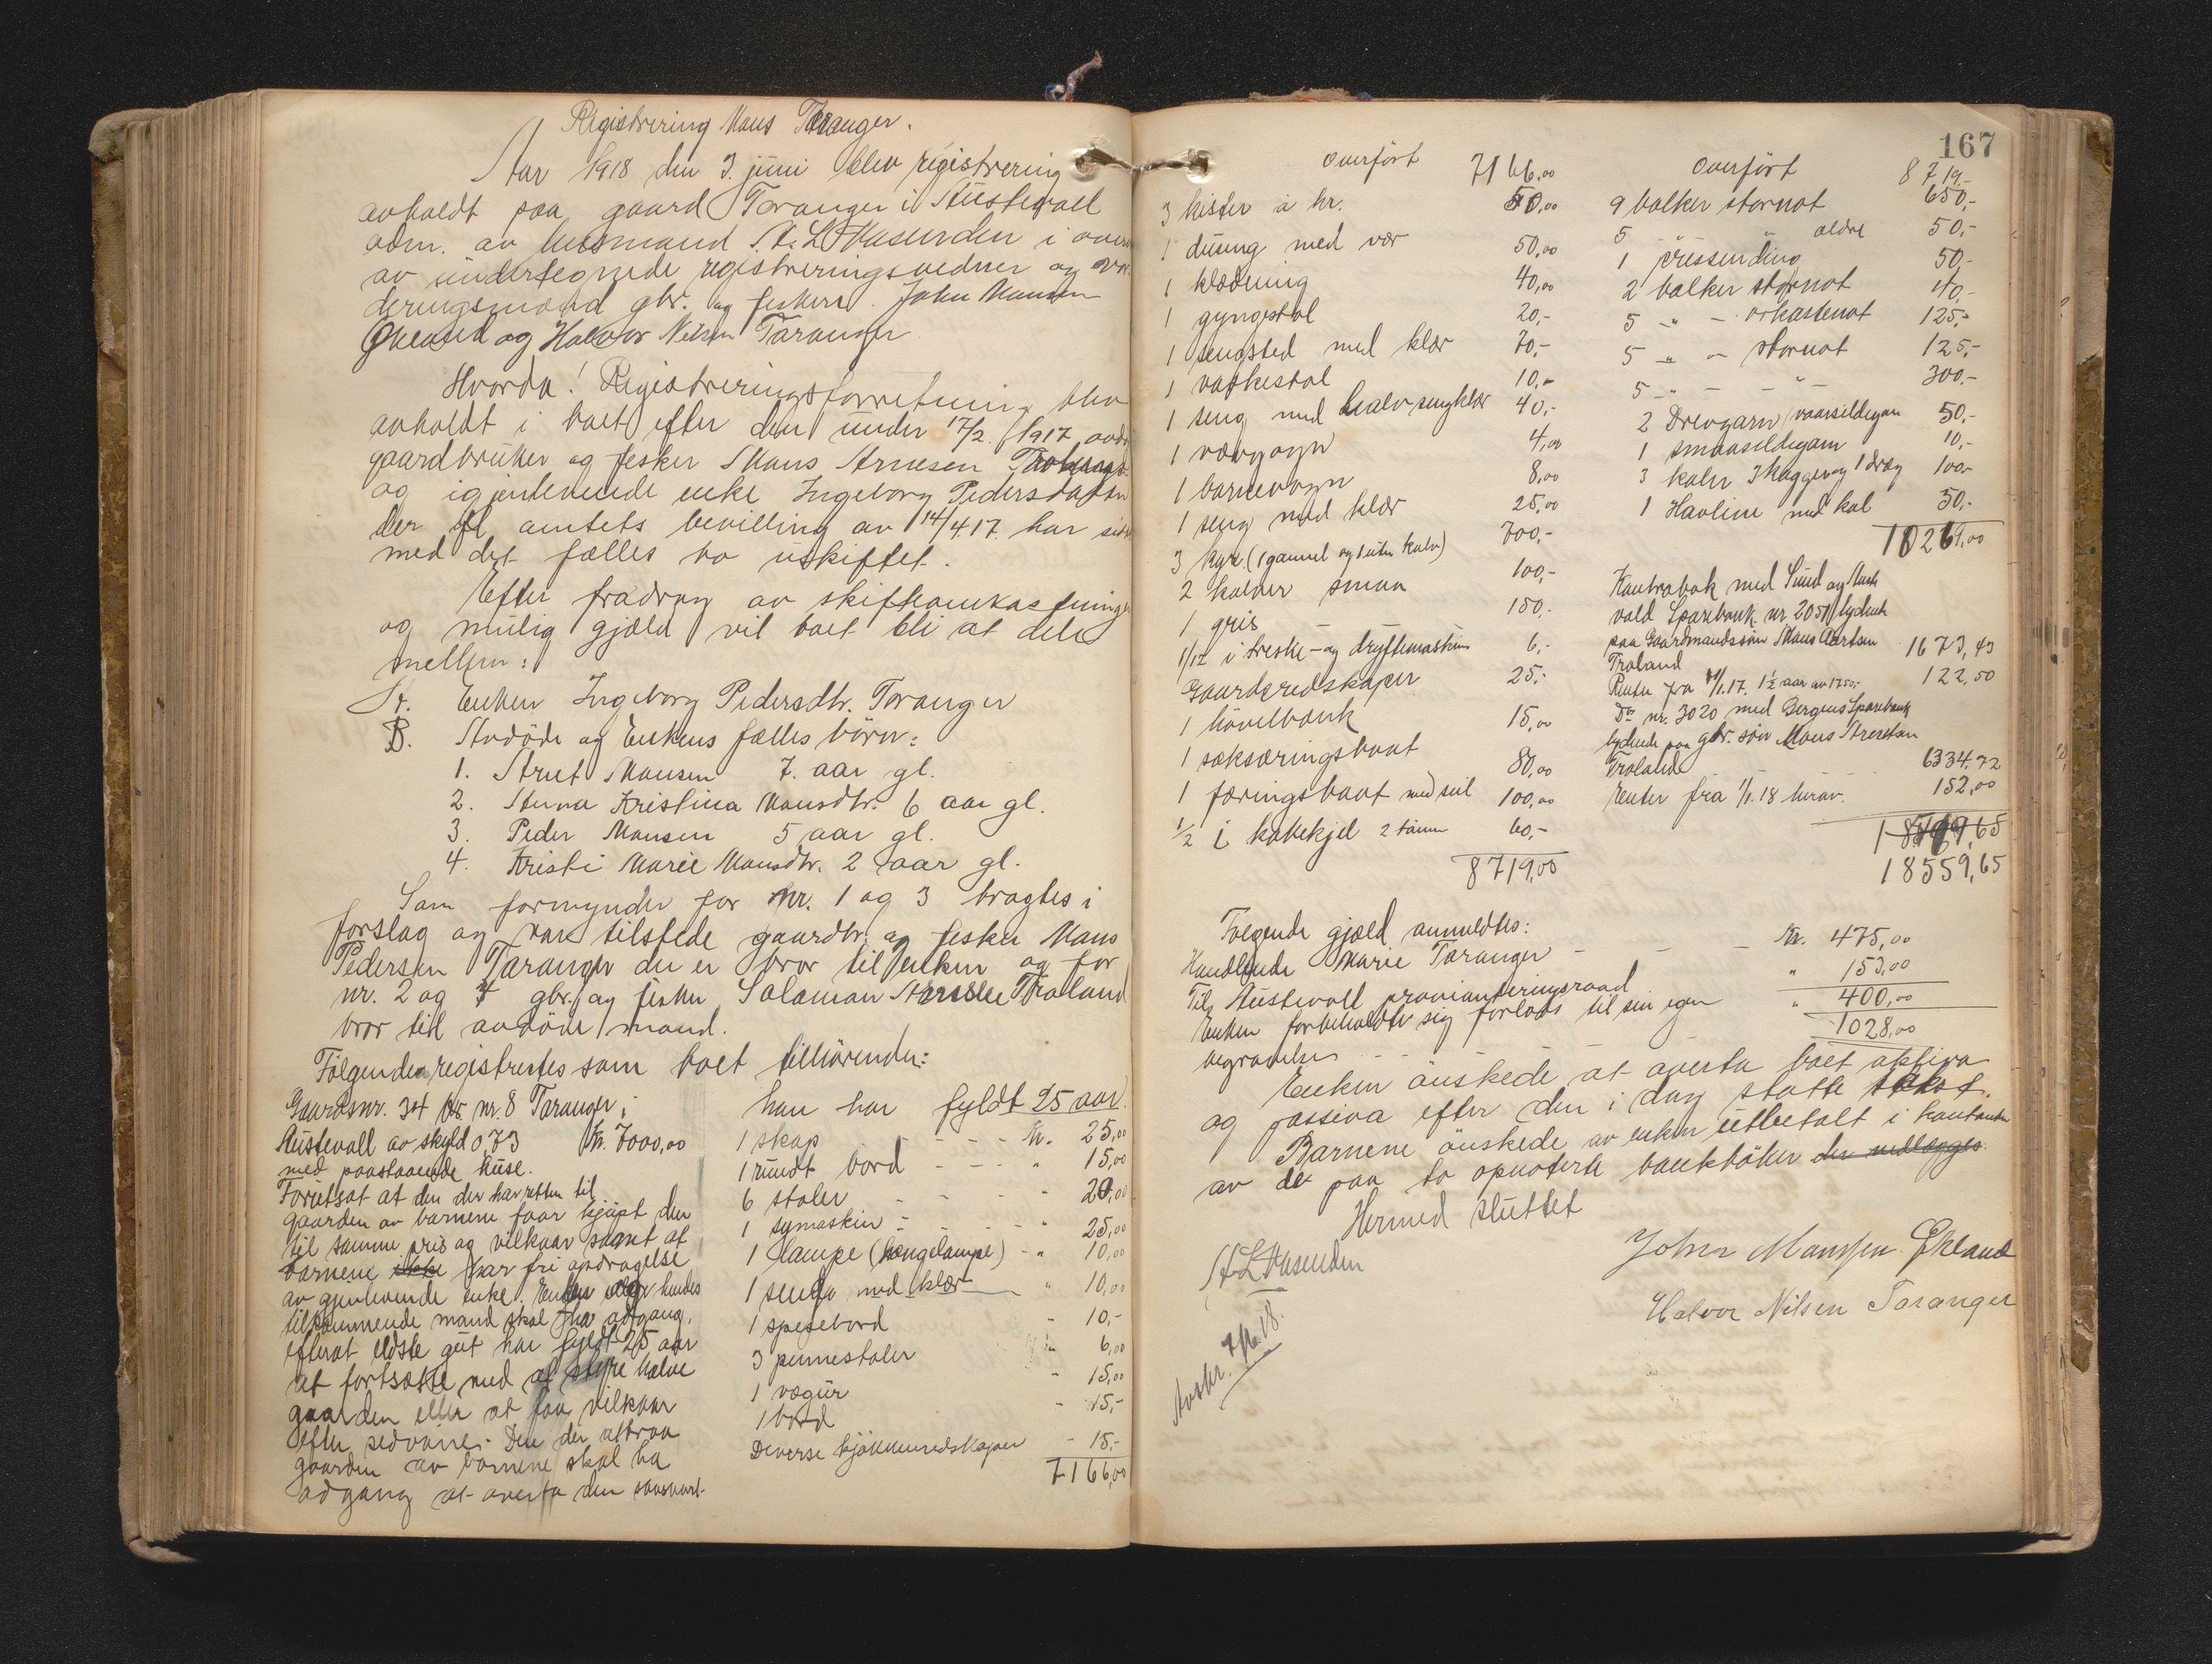 Registrering Mons Taranger.
Aar 1918 den 3. juni blev registrering
avholdt paa gaard Taranger i Austevoll
adm. av lensmand A. L. Vasenden i
av undertegnede registreringsvidner og
deringsmænd gbr. og fiskere John Monsen
Økland og Halvor Nilsen Taranger
Hvorda! Registreringsforretning blev
avholdt i boet efter den under 17/2. 1917
gaardbruker og fisker Mons Arnesen
og igjenlevende enke Ingeborg Pedersdatter
der amtets bevilling av 14/4.17. har
med det fælles bo uskiftet.
Efter fradrag av skifteomkostninger
og mulig gjæld vil boet bli at dele
mellem:
A. Enken Ingeborg Pedersdtr. Taranger
B. Avdöde og Enkens fælles börn:
1. Arnet Monsen 7. aar gl.
2. Anna Kristina Monsdtr. 6 aar gl.
3. Peder Monsen 5 aar gl.
4. Kristi Marie Monsdtr. 2 aar gl.
Som formynder for nr. 1 og 3 bragtes i
forslag og var tilstede gaardbr. og fisker Mons
Pedersen Taranger der er bror til enken og for
nr. 2 og 4 gbr. og fisker Salamon Arnesen Troland
bror til avdöde mand.
Fölgende registrertes som boet tilhörende:
Gaardsnr. 34 br. nr. 8 Taranger i
Austevoll av skyld 0,73 Kr. 7000,00
med paastaaende huse.
Forutsat at den der har retten til
gaarden av barnene faar kjöpt den
til samme pris og vilkaar samt at
barnene ikke har fri opdragelse
av gjenlevende enke. Enken eller hendes
tilkommende mand skal ha adgang,
efterat eldste gut har fyldt 25 aar
at fortsætte med at styre halve
gaarden eller at faa vilkaar
efter sedvane. Den der attraa
gaarden av barnene skal ha
adgang at overta den
han har fyldt 25 aar.
1 skap - - - Kr. 25,00
1 rundt bord - - - " 15,00
6 stoler - - - " 20,00
1 symaskin - - - " 25,00
1 lampe (hængelampe) - " 10,00
1 seng med klær " 10,00
1 spisebord - 10,-
3 pinnestoler 6,00
1 vægur - 15,00
1 bord - 15,-
Deverse kjökkenredskaper - 15,-
7166,00
167
overfört 7166,00
3 kister à kr. 50,00
1 duung med vær 50,00
1 klædning 40,00
1 gyngestol 20,-
1 sengsted med klær 70,-
1 vaskestol 10,-
1 seng med halv sengklær 40,-
1 vævgogn 4,00
1 barnevogn 8,00
1 seng med klær 25,00
3 kyr (1 gammel og 1 uten kalv) 700,-
2 kalver smaa 100,-
1 gris 150,-
1/17 i treske- og dryftemaskin 6,-
Gaardsredskaper 25,-
1 hövelbænk 15,00
1 seksæringsbaat 80,00
1 færingsbaat med seil 100,00
1/2 i kokekjel 2 tönner 60,-
8719,00
overfört 8719,-
9 balker stornot 650,-
5 " " ældre 50,-
1 presending 50,-
2 balker stornot 40,-
5 -"- - orkastenot 125,-
5 -"- " stornot 125,-
5 -"- - -"- 300,-
2 Drevgarn (vaarsildegarn 50,-
1 smaasildegarn 10,-
3 kaler 3 kagger og 1 dræg 100,-
1 Havline med kal 50,-
10269,00
Kontrabok med Sund og Auste
vold Sparebank nr. 2050 lydende
paa Gaardmandssön Mons Arnesen
Troland 1673,43
Renter fra 1/1.17. 1½ aar av 1750,- 122,50
Do nr. 3020 med Bergens Sparebank
lydende paa gbr. sön Mons Arnesen
Troland 6334,72
Renter fra 1/1.18 herav. 152,00
18559,65
Fölgende gjæld anmeldtes:
Handlende Marie Taranger - - - Kr. 475,00
Til Austevoll provianteringsraad " 153,00
Enken forbeholdte sig forlods til sin egen
begravelse - - " 400,00
1028,00
Enken önskede at overta boet aktiva
og passiva efter den i dag satte takst.
Barnene önskede av enken utbetalt i kontanter
av de paa to opnoterte bankböker der nedlægges.
Hermed sluttet
A. L. Vasenden
John Monssen Økland
Halvor Nilsen Taranger
Avskr. 7/6.18.